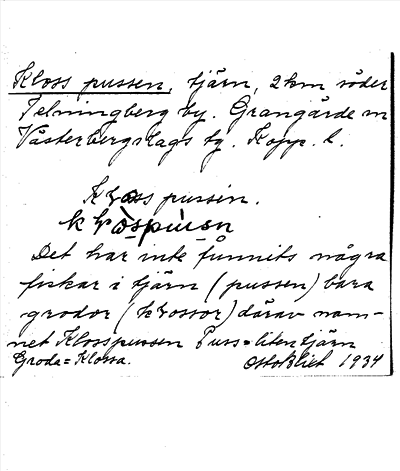 Kloss pussen, tjärn, 2 km söder
Telningberg by. Grangärde sn
Västerbergslags tg. Kopp. l.
Kross pussen.
Det har inte funnits några
fiskar i tjärn (pussen) bara
grodor (krossor) därav nam-
net Klosspussen Puss = liten tjärn
Groda = Klossa. 1934